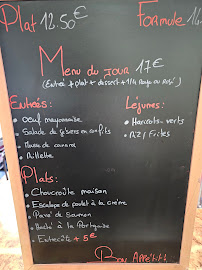 Plat 12.50€ Formule 14
Menu du jour 17€
(Entrée + plat + dessert + 1/4 Rouge ou Rosé)
Entrées:
• oeuf mayonnaise
• Salade de gésiers en confits
• Mousse de canard
• Rillette
Légumes:
• Haricots-verts
• Riz / Frites
Plats:
• Choucroute maison
• Escalope de poulet à la crème
• Pavé de Saumon
• à la Portugaise
• Entrecôte + 5€
Bon Appétit